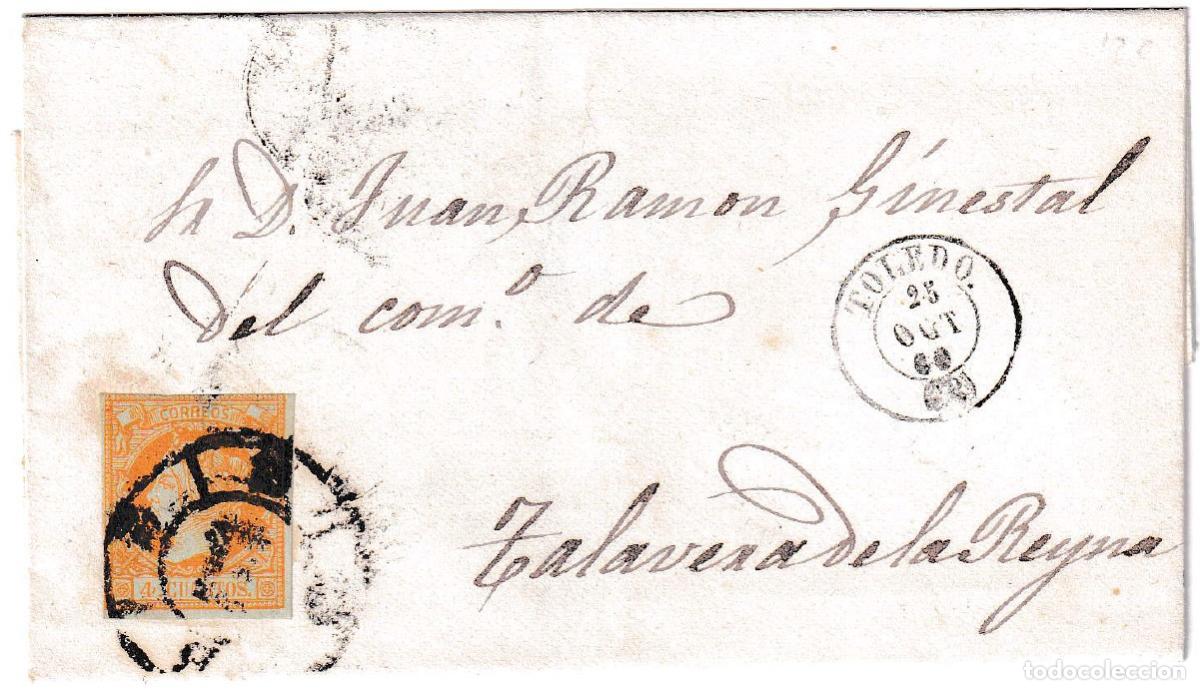 Sr D. Juan Ramon Ginestal
del com.º de
TOLEDO.
25
OCT
60
CORREOS
4 CUARTOS.
Talavera de la Reyna
todocoleccion